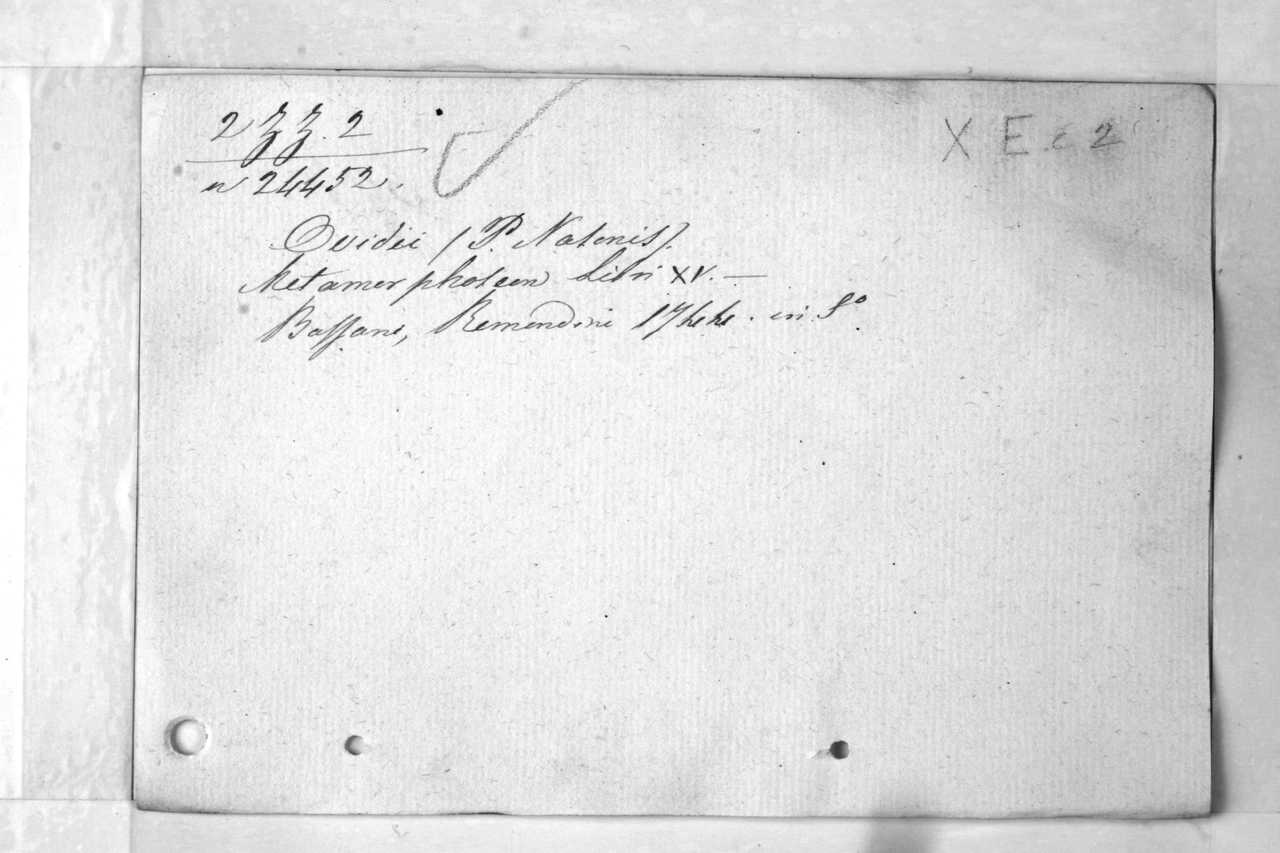 2 zz. 2
X E. c 2
n 24452.
Ovidii (P. Nasonis).
Metamorphoseon Libri XV. —
Bassani, Remondini 1744. in 8º